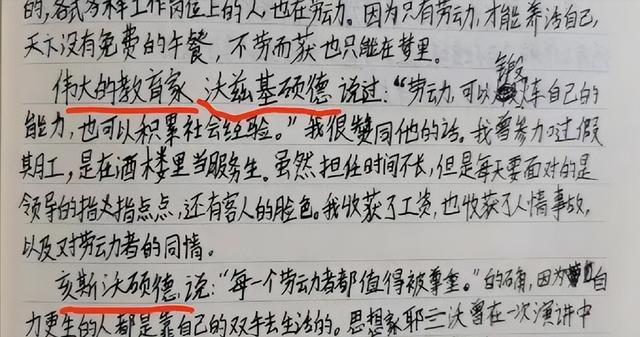 的,各式各样工作岗位上的人,也在劳动。因为只有劳动,才能养活自己,
天下没有免费的午餐,不劳而获也只能在梦里。
伟大的教育家,沃兹基硕德说过:“劳动,可以锻炼自己的
能力,也可以积累社会经验。”我很赞同他的话。我曾参加过假
期工,是在酒楼里当服务生。虽然担任时间不长,但是每天要面对的是
领导的指指点点,还有客人的脸色。我收获了工资,也收获了人情事故,
以及对劳动者的同情。
亥斯沃硕德说:“每一个劳动者都值得被尊重。”的确,因为自
力更生的人都是靠自己的双手去生活的。思想家耶三沃曾在一次演讲中